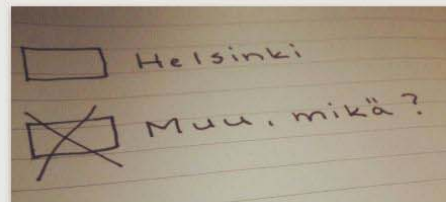 Helsinki
Muu, mikä?